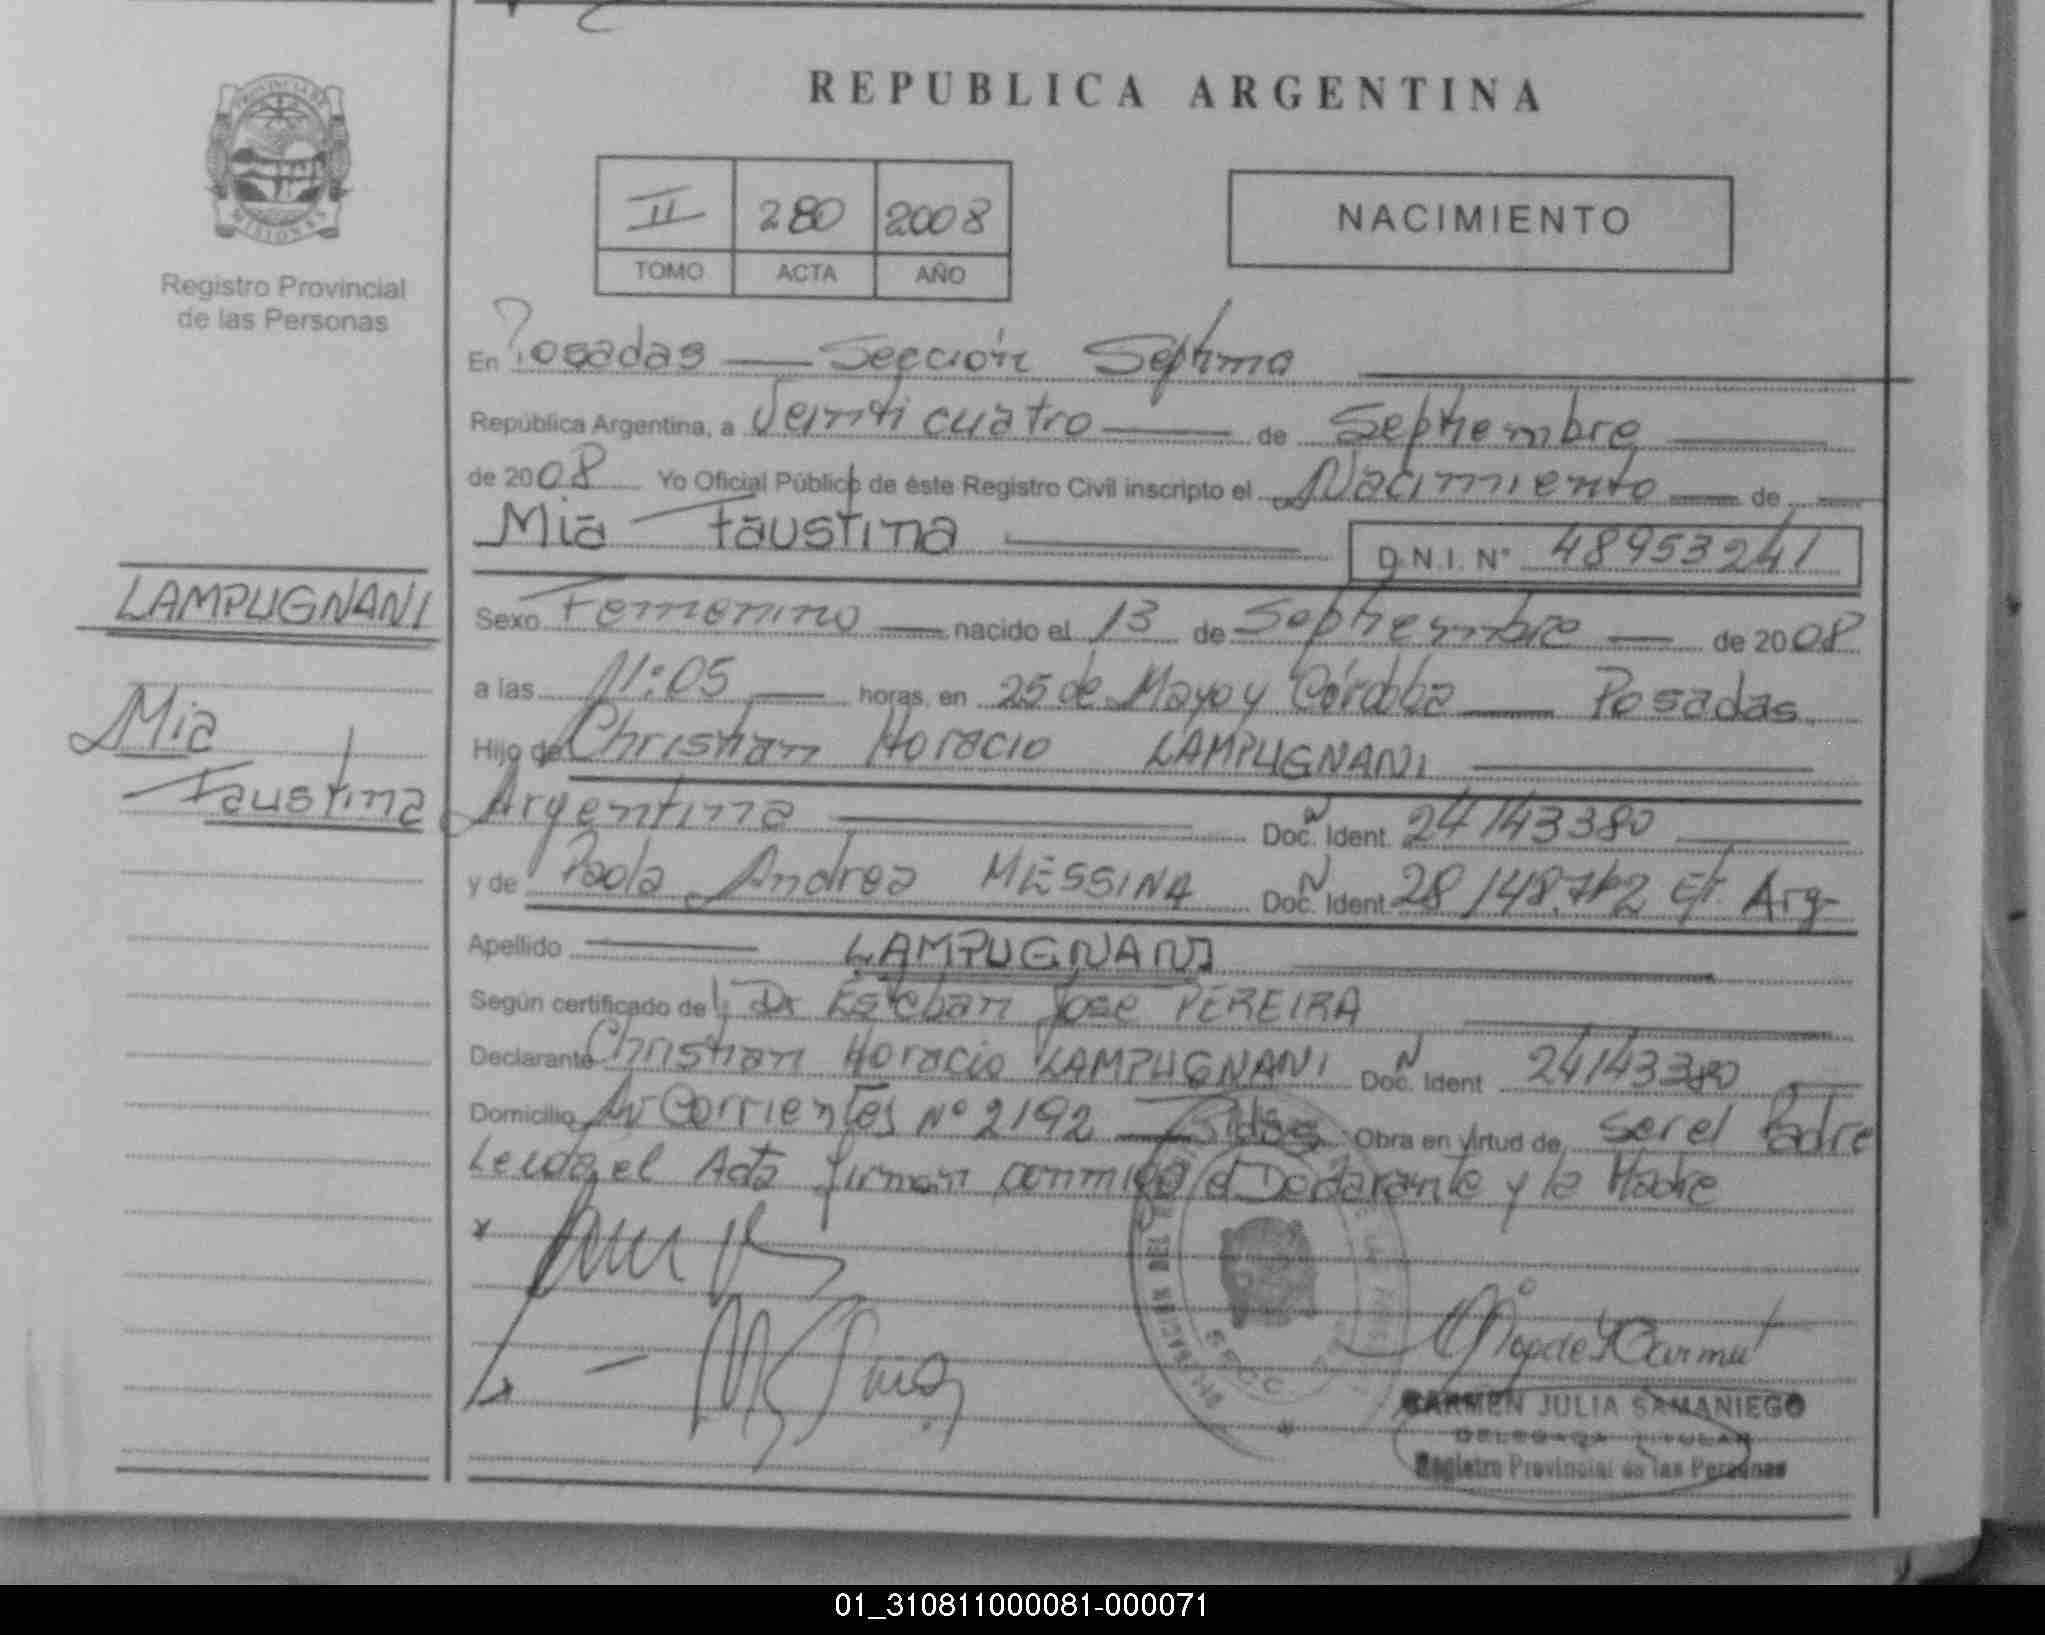 REPUBLICA ARGENTINA
PROVINCIA DE
MISIONES
Registro Provincial
de las Personas
II 280 2008
TOMO ACTA AÑO
NACIMIENTO
En Posadas — Sección Séptima
República Argentina, a Veinticuatro — de Septiembre
de 2008 Yo Oficial Público de éste Registro Civil inscripto el Nacimiento — de —
Mia Faustina
D.N.I. Nº 48953241
LAMPUGNANI
Mia
Faustina
Sexo Femenino — nacido el 13 de Septiembre — de 2008
a las 11:05 — horas, en 25 de Mayo y Córdoba — Posadas
Hijo de Christian Horacio LAMPUGNANI
Argentina Doc. Ident. N 24143380
y de Paola Andrea MESSINA Doc. Ident. N Arg-
Apellido LAMPUGNANI
Según certificado de Dr Esteban Jose PEREIRA
Declarante Christian Horacio LAMPUGNANI Doc. Ident N 24143380
Domicilio Av Corrientes Nº 2192 — Pdas Obra en virtud de ser el Padre
Leida el Acta firman conmigo el Declarante y la Madre
CARMEN JULIA SAMANIEGO
DELEGADA TITULAR
Registro Provincial de las Personas
01_310811000081-000071